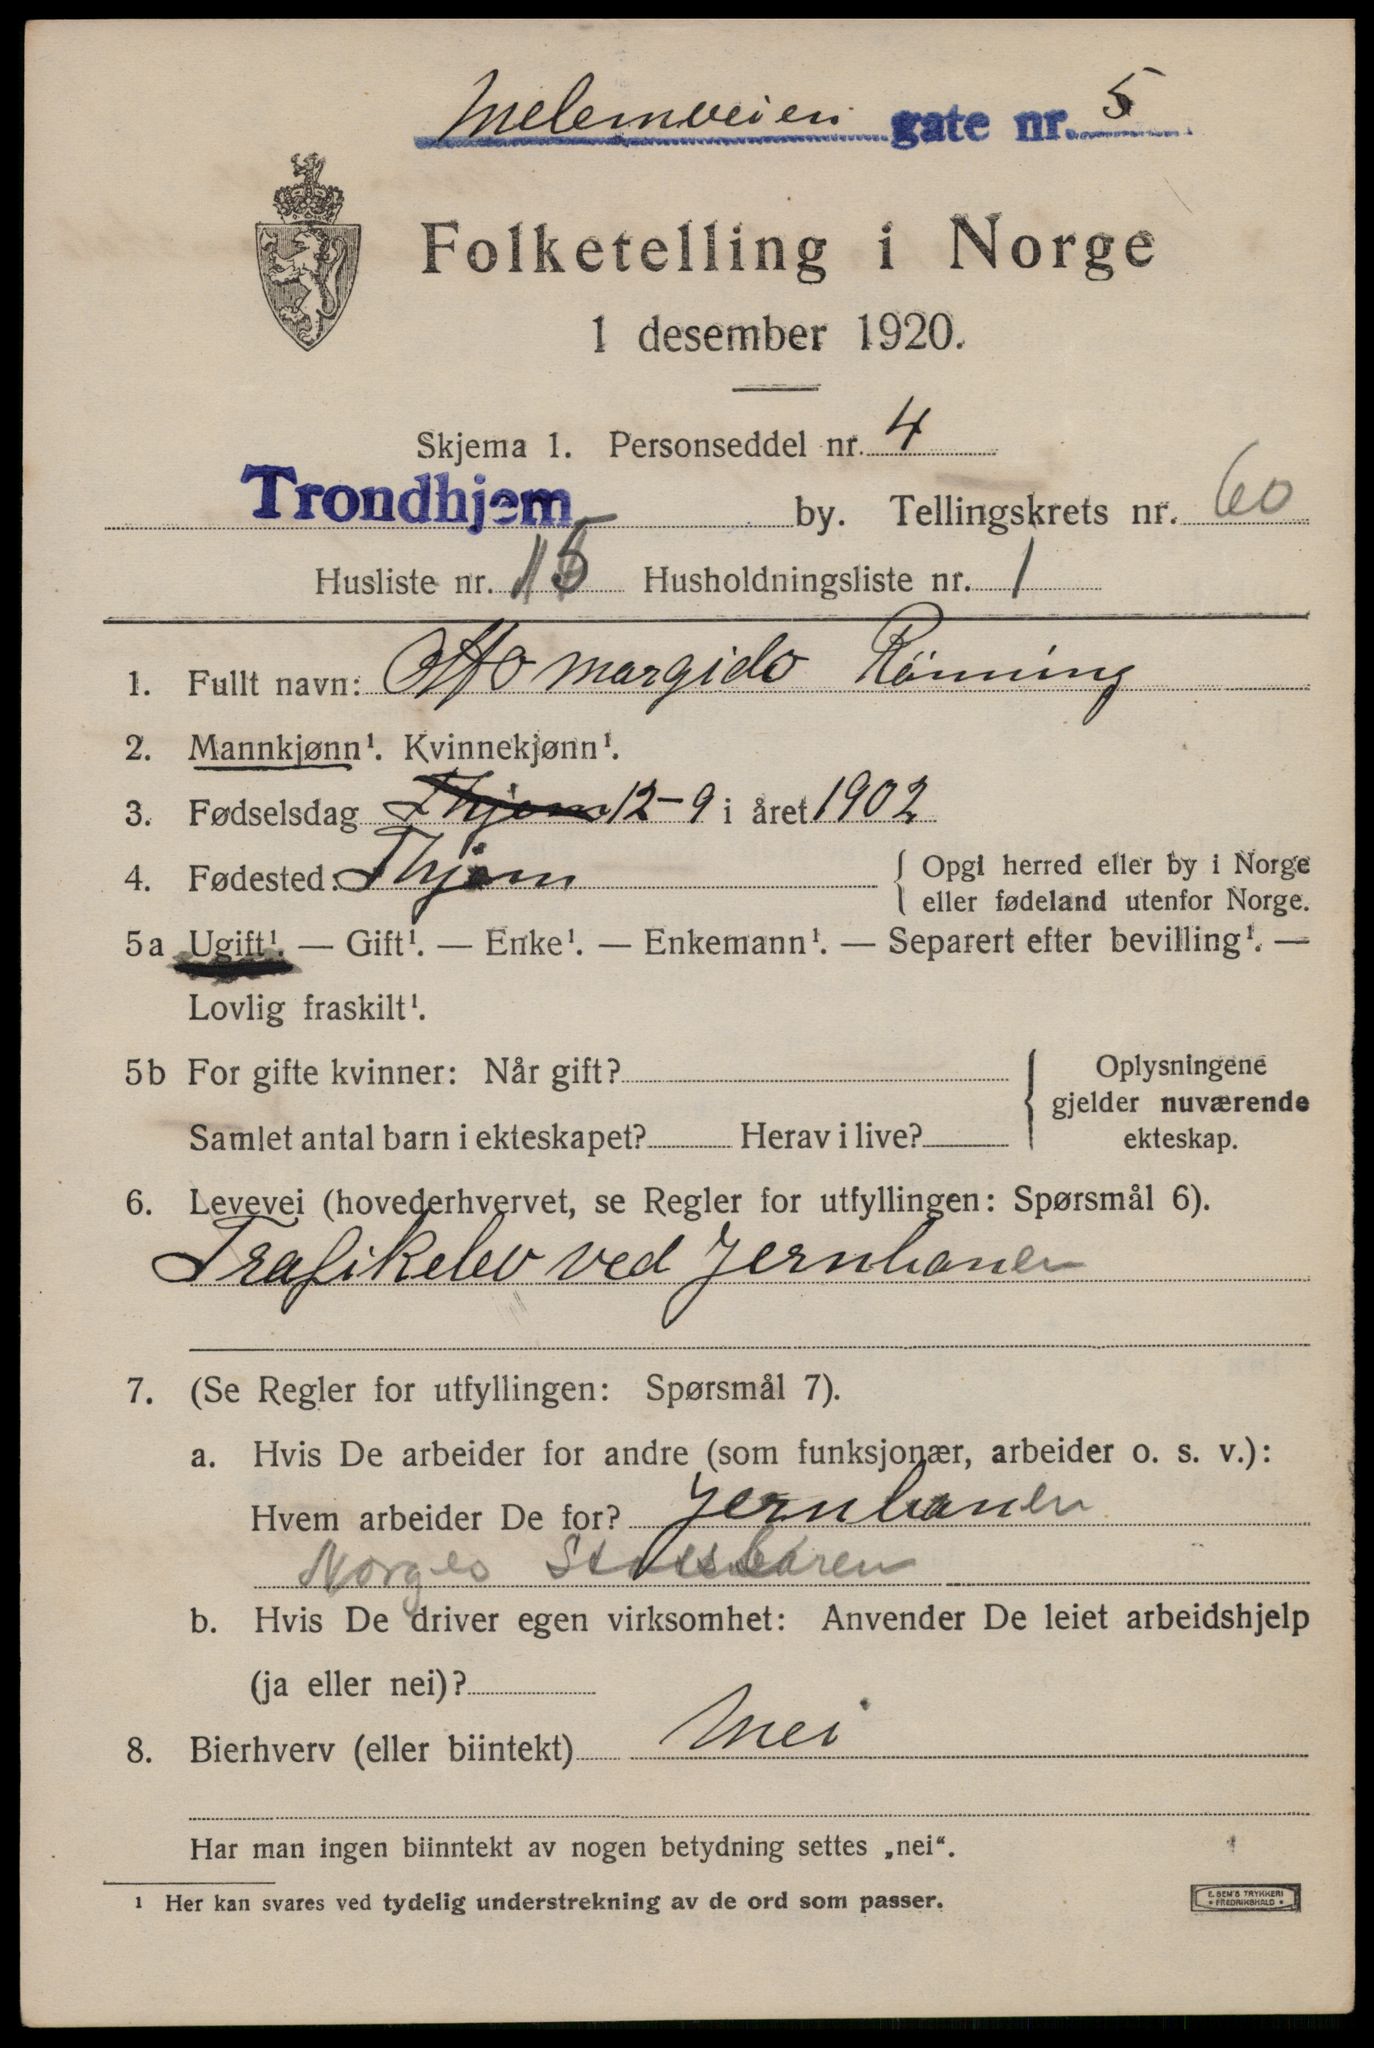 Melemveien gate nr. 5
Folketelling i Norge
1 desember 1920.
Skjema 1. Personseddel nr. 4
Trondhjem by. Tellingskrets nr. 60
Husliste nr. 15 Husholdningsliste nr. 1
1. Fullt navn: Otto Margido Rönning
2. Mannkjønn¹. Kvinnekjønn¹.
3. Fødselsdag Thjem 12-9 i året 1902
4. Fødested: Thjem { Opgi herred eller by i Norge
eller fødeland utenfor Norge.
5a Ugift¹. — Gift¹. — Enke¹. — Enkemann¹. — Separert efter bevilling¹. —
Lovlig fraskilt¹.
5b For gifte kvinner: Når gift? { Oplysningene
gjelder nuværende
Samlet antal barn i ekteskapet? Herav i live? ekteskap.
6. Levevei (hovederhvervet, se Regler for utfyllingen: Spørsmål 6).
Trafikelev ved Jernbanen
7. (Se Regler for utfyllingen: Spørsmål 7).
a. Hvis De arbeider for andre (som funksjonær, arbeider o. s. v.):
Hvem arbeider De for? Jernbanen
Norges Statsbaner
b. Hvis De driver egen virksomhet: Anvender De leiet arbeidshjelp
(ja eller nei)?
8. Bierhverv (eller biintekt) Nei
Har man ingen biinntekt av nogen betydning settes „nei“.
¹ Her kan svares ved tydelig understrekning av de ord som passer.
E. SEM'S TRYKKERI
• FREDRIKSHALD •